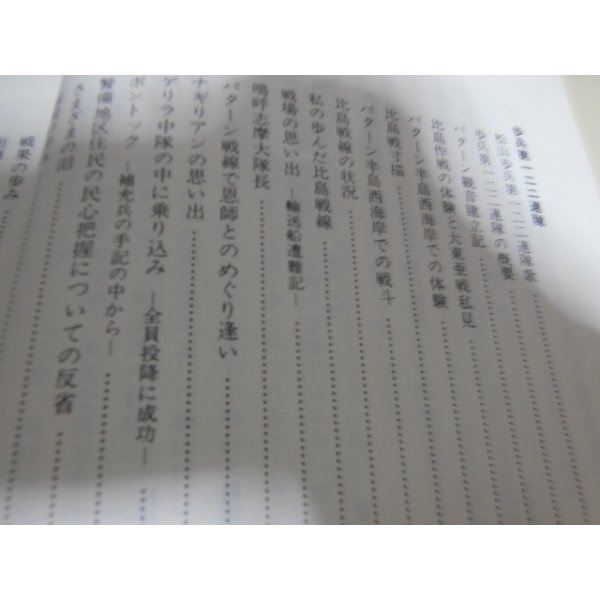 歩兵第一二二連隊
松山歩兵第一二二連隊歌
歩兵第一二二連隊の概要
バターン観音建立記
比島作戦の体験と大東亜戦私見
バターン半島西海岸での体験
比島戦寸描
バターン半島西海岸での戦斗
比島戦線の状況
私の歩んだ比島戦線
戦場の思い出 ―輸送船遭難記―
嗚呼志摩大隊長
バターン戦線で恩師とのめぐり逢い
ナギリアンの思い出
ゲリラ中隊の中に乗り込み ―全員投降に成功―
ボントック ―補充兵の手記の中から―
警備地区住民の民心把握についての反省
さまざまの泪
戦果の歩み